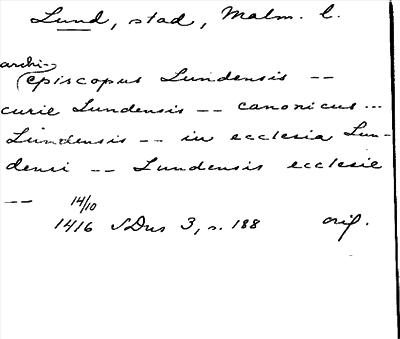 Lund, stad, Malm. l.
archi-
episcopus Lundensis --
curie Lundensis -- canonicus...
Lundensis -- in ecclesia Lun-
densi -- Lundensis ecclesie
-- 14/10
1416 SDns 3, s. 188 orig.